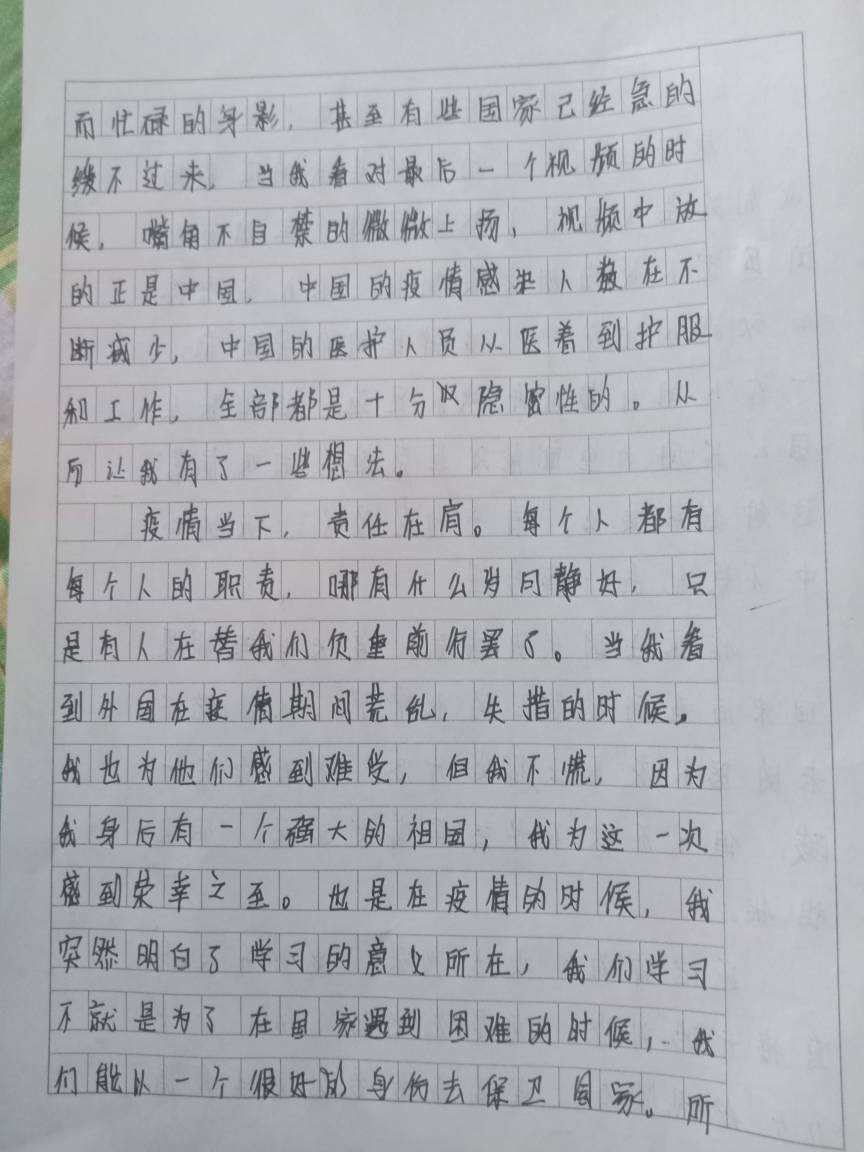 而忙碌的身影，甚至有些国家已经急的
缓不过来，当我看对最后一个视频的时
候，嘴角不自禁的微微上扬，视频中放
的正是中国，中国的疫情感染人数在不
断减少，中国的医护人员从医着到护服
和工作，全部都是十分以隐密性的。从
而让我有了一些想法。
疫情当下，责任在肩。每个人都有
每个人的职责，哪有什么岁月静好，只
是有人在替我们负重前行罢了。当我看
到外国在疫情期间荒乱，失措的时候。
我也为他们感到难受，但我不慌，因为
我身后有一个强大的祖国，我为这一次
感到荣幸之至。也是在疫情的时候，我
突然明白了学习的意义所在，我们学习
不就是为了在国家遇到困难的时候，我
们能以一个很好的身份去保卫国家。所